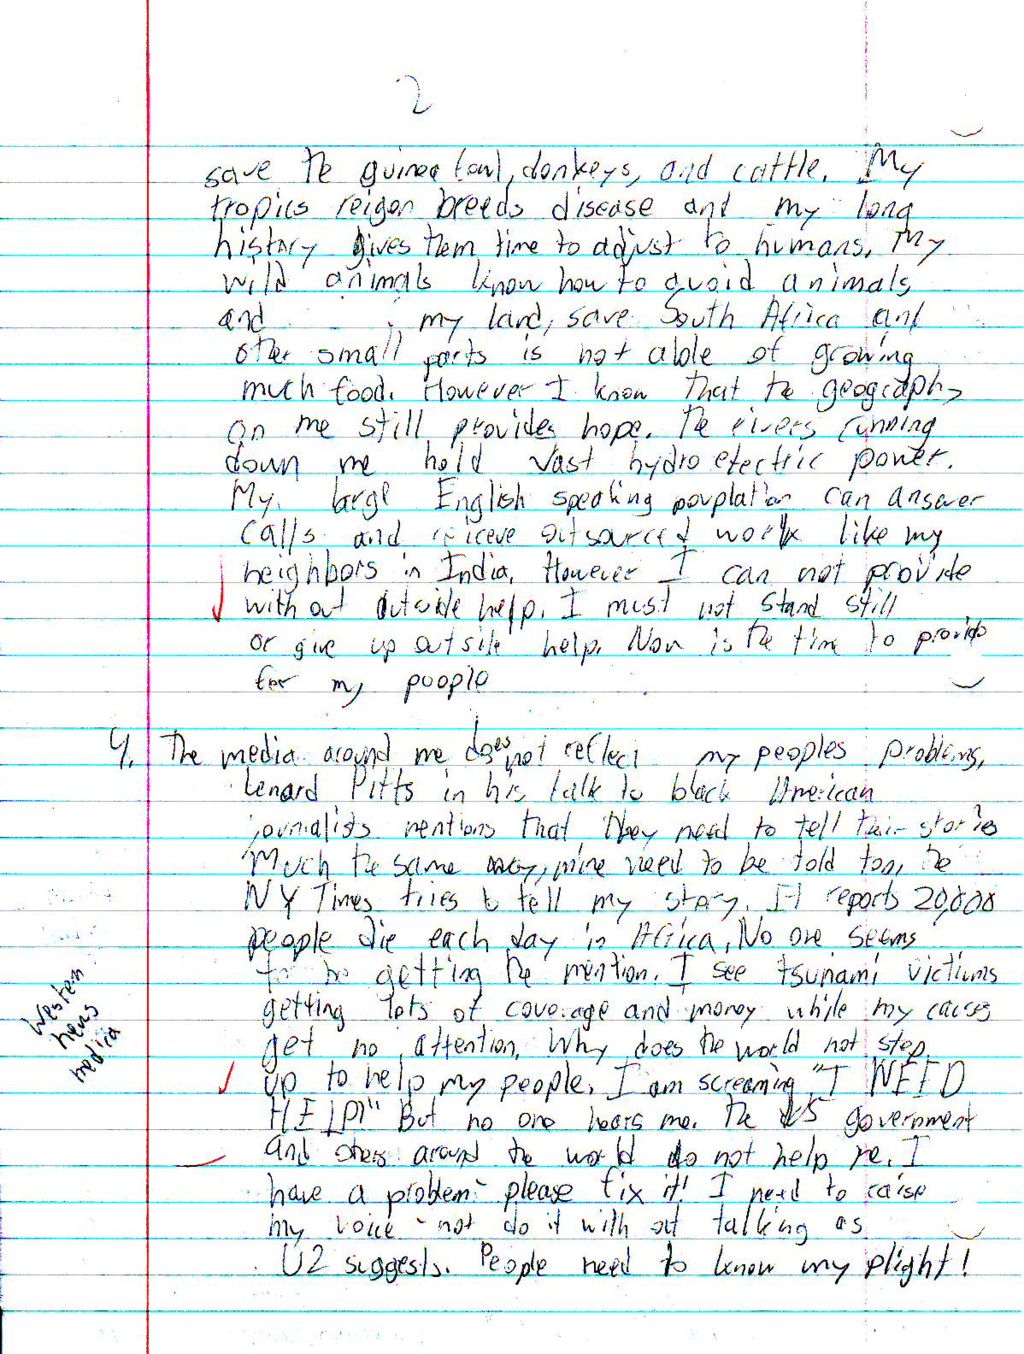 2
save the guinea fowl, donkeys, and cattle. My
tropics reigon breeds disease and my long
history gives them time to adjust to humans. My
wild animals know how to avoid animals
and my land, save South Africa and
other small parts is not able of growing
much food. However I know that the geography
on me still provides hope. The rivers running
down me hold vast hydroelectric power.
My large English speaking pouplation can answer
calls and reiceve outsourced work like my
neighbors in India. However I can not provide
without outside help. I must not stand still
or give up outside help. Now is the time to provide
for my poople
4. The media around me does not reflect my peoples problems.
Lenard Pitts in his talk to black American
journalists mentions that they need to tell their stories
Much the same way, mine need to be told too, the
NY Times tries to tell my story. It reports 20,000
people die each day in Africa, No one seems
to be getting the mention. I see tsunami victiums
getting lots of coverage and money while my causes
get no attention. Why does the world not step
up to help my people. I am screaming "I NEED
HELP!" But no one hears me. The US government
and others around the world do not help me. I
have a problem - please fix it! I need to raise
my voice - not do it with out talking as
U2 suggests. People need to know my plight!
Western
news
media